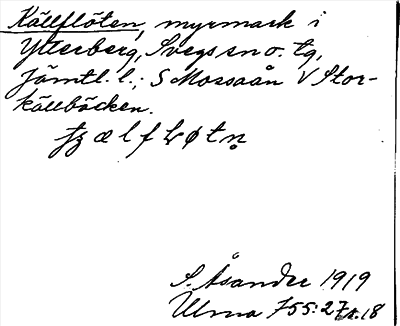 Källflöten, myrmark i
Ytterberg, Svegs sn o. tg,
Jämtl. l.; S Mossaån V Stor-
källbäcken.
S. Åsander 1919
Ulma 755:27